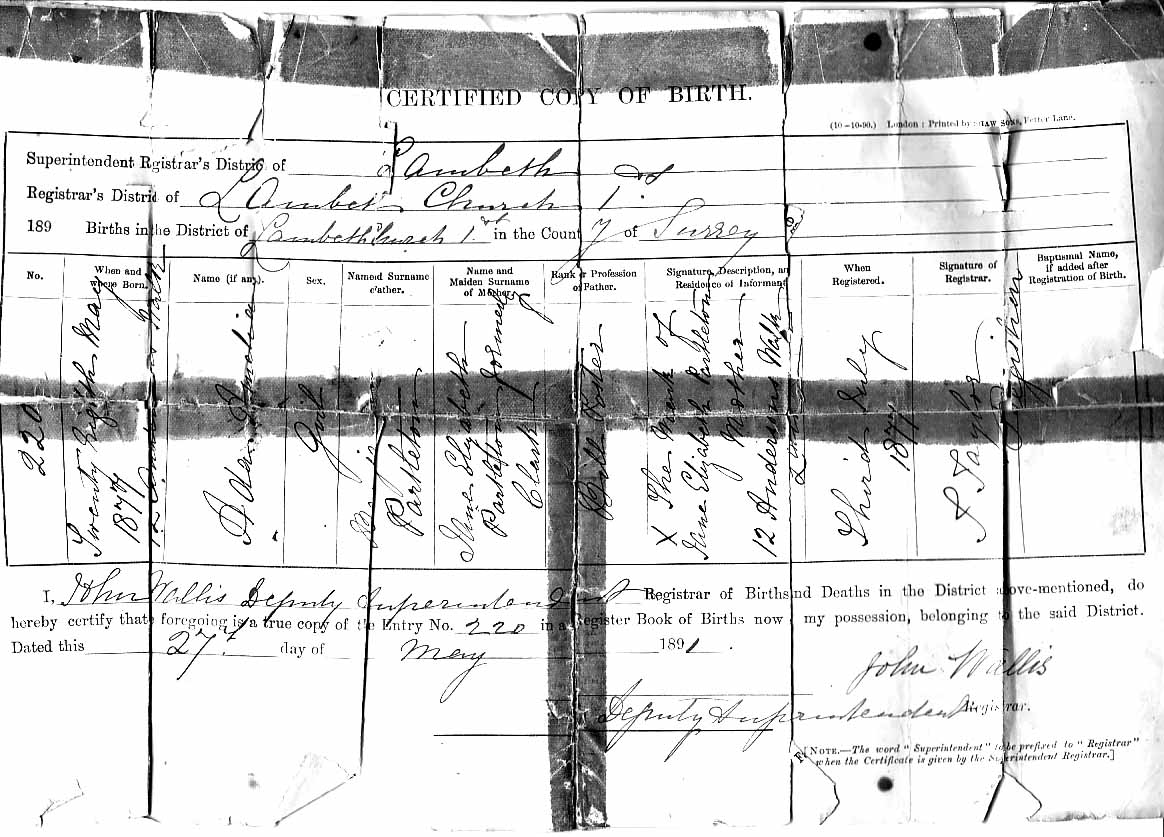 CERTIFIED COPY OF BIRTH.
(10-10-90.) London: Printed by SHAW SONS, Fetter Lane.
Superintendent Registrar's District of Lambeth
Registrar's District of Lambeth Church 1st
189 Births in the District of Lambeth Church 1st in the County of Surrey
No.
When and where Born.
Name (if any).
Sex.
Name and Surname of Father.
Name and Maiden Surname of Mother.
Rank or Profession of Father.
Signature, Description, and Residence of Informant.
When Registered.
Signature of Registrar.
Baptismal Name, if added after Registration of Birth.
220
Twenty Eighth May
1877
12 Walk
Girl
Partleton
Jane Elizabeth
Partleton formerly
Clark
Bill Poster
X The Mark of
Jane Elizabeth Partleton
Mother
12 Andersons Walk
Third July
1877
Taylor
Registrar
I, John Wallis Deputy Superintendent Registrar of Births and Deaths in the District above-mentioned, do
hereby certify that foregoing is a true copy of the Entry No. 220 in a Register Book of Births now my possession, belonging to the said District.
Dated this 27th day of May 1891.
John Wallis
Deputy Superintendent Registrar.
[NOTE.—The word "Superintendent" to be prefixed to "Registrar"
when the Certificate is given by the Superintendent Registrar.]